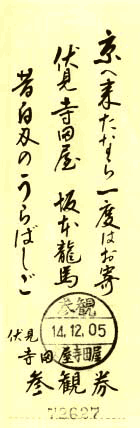 京へ来たなら一度はお寄り
伏見寺田屋 坂本龍馬
昔白刃のうらばしご
参観
14.12.05
寺田屋
伏見
寺田屋
参観券
12627